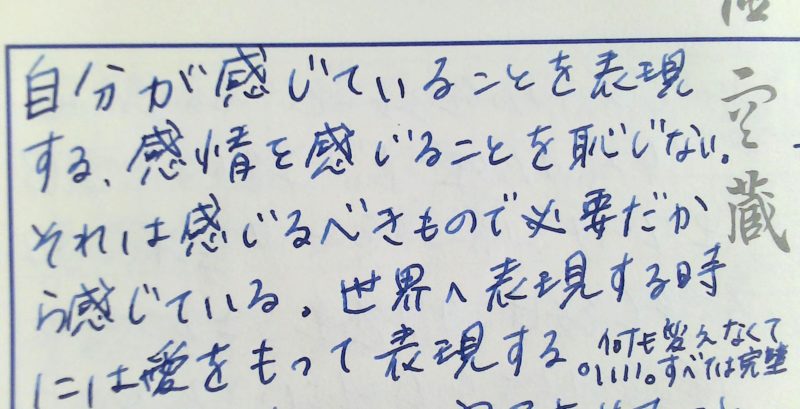 自分が感じていることを表現
する、感情を感じることを恥じない。
それは感じるべきもので必要だか
ら感じている。世界へ表現する時
には愛をもって表現する。何も変えなくて
いい。すべては完璧
蔵